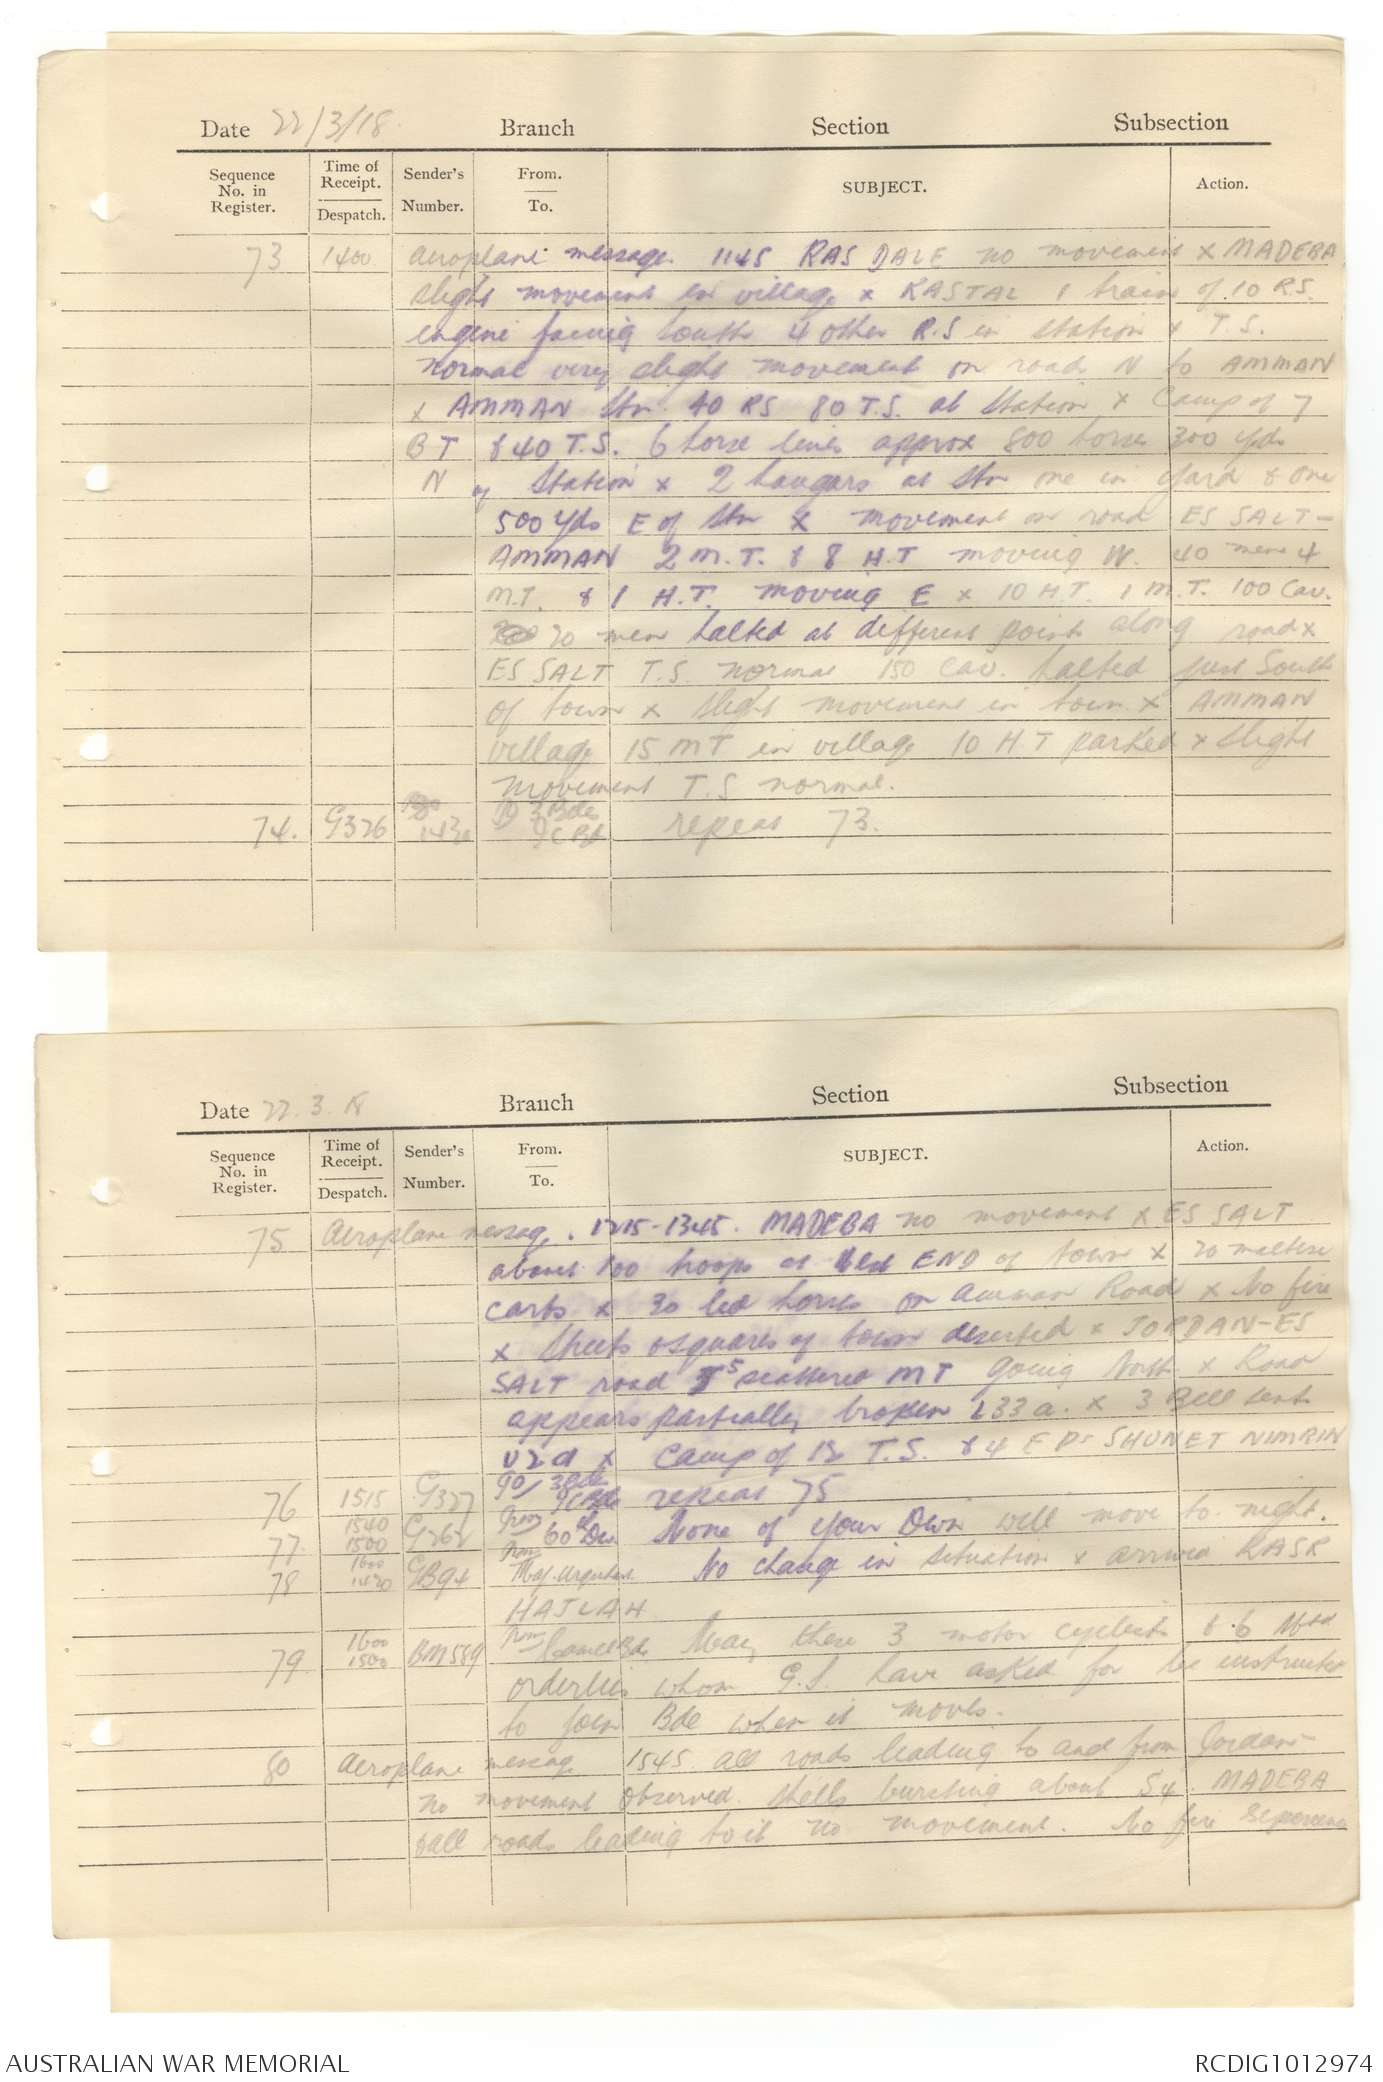 Date 22/3/18. Branch Section Subsection
Sequence No. in Register. Time of Receipt. Despatch. Sender's Number. From. To. SUBJECT. Action.
73 1400 Aeroplane message. 1145 RAS DALE no movement x MADEBA
slight movement in village x KASTAL 1 train of 10 R.S.
engine facing South 4 other R.S in station x T.S.
normal very slight movement on road N to AMMAN
x AMMAN Stn. 40 RS 80 T.S. at Station x Camp of 7
BT & 40 T.S. 6 horse lines approx 800 horses 300 yds
N of Station x 2 hangars at Stn one in yard & one
500 yds E of Stn x movement on road ES SALT-
AMMAN 2 M.T. & 8 H.T moving W. 40 men 4
M.T. & 1 H.T. moving E x 10 H.T. 1 M.T. 100 Cav.
20 men halted at different points along road x
ES SALT T.S. normal 150 Cav. halted just South
of town x slight movement in town x AMMAN
village 15 MT in village 10 H.T parked x slight
movement T.S normal.
74. G326 1430 To 3 Bdes 9C Bd repeat 73.
Date 22.3.18 Branch Section Subsection
Sequence No. in Register. Time of Receipt. Despatch. Sender's Number. From. To. SUBJECT. Action.
75 Aeroplane message. 1215-1345. MADEBA no movement x ES SALT
about 100 troops at END of town x 20 maltese
carts x 30 led horses on Amman Road x No fire
x Streets & squares of town deserted x JORDAN-ES
SALT road 5 scattered MT going North x Road
appears partially broken L33a. x 3 Bell tents
U2d x Camp of 12 T.S. & 4 E Ps SHUNET NIMRIN
76 1515 G327 To/ 3 Bdes 9C Bde repeat 75
77. 1540 1500 G262 From 60th Div None of your Divn will move to night.
78 1600 1430 GB94 From Maj. Urquhart No change in situation x arrived KASR
HAJLAH
79 1600 1500 BM589 From Camel Bde May these 3 motor cyclists & 6 Mtd
orderlies whom G.S. have asked for be instructed
to join Bde when it moves.
80 Aeroplane message 1545. All roads leading to and from Jordan-
no movement observed. Shells bursting about S4. MADEBA
& all roads leading to it no movement. No fire experienced
AUSTRALIAN WAR MEMORIAL RCDIG1012974